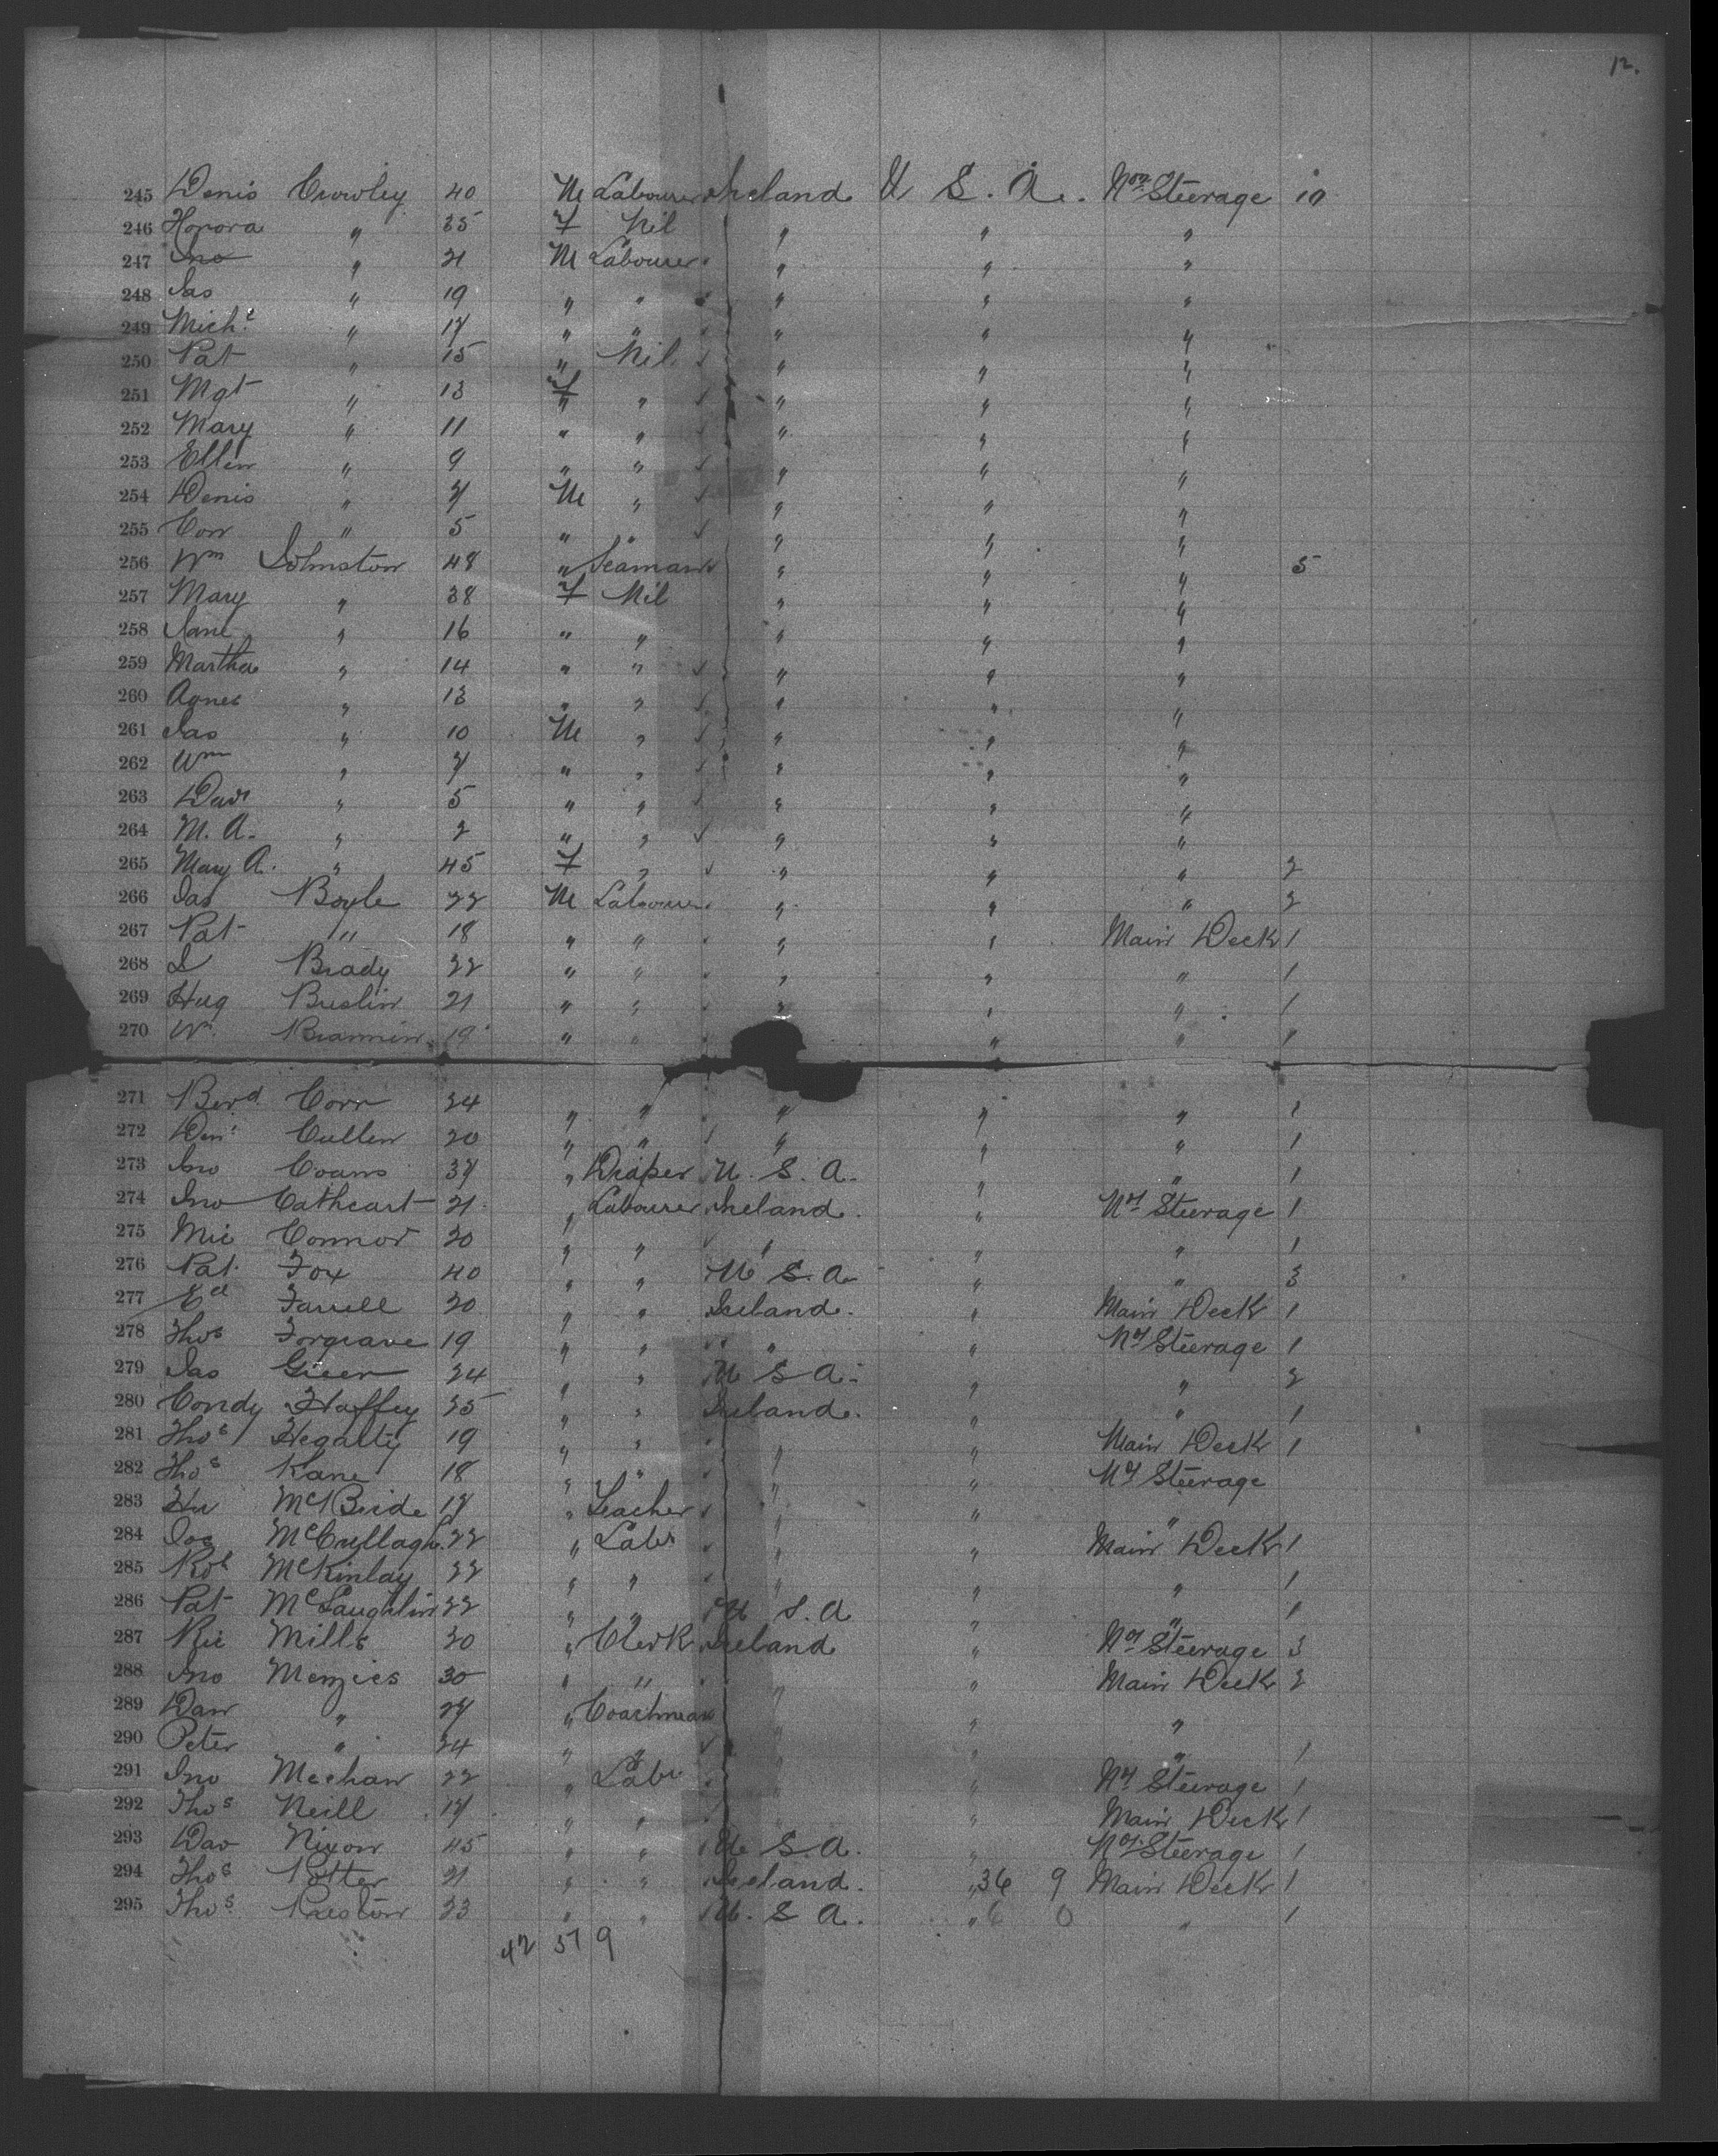 12.
245 Denis Crowley 40 M Labourer Ireland U. S. A. Nor. Steerage 10
246 Honora " 35 F Nil " " "
247 Jno " 21 M Labourer " " "
248 Jas " 19 " " " " "
249 Michl " 17 " " " " "
250 Pat " 15 " Nil " " "
251 Mgt " 13 F " " " "
252 Mary " 11 " " " " "
253 Ellen " 9 " " " " "
254 Denis " 7 M " " " "
255 Corn " 5 " " " " "
256 Wm Johnston 48 " Seaman " " " 5
257 Mary " 38 F Nil " " "
258 Jane " 16 " " " " "
259 Martha " 14 " " " " "
260 Agnes " 13 " " " " "
261 Jas " 10 M " " " "
262 Wm " 7 " " " " "
263 Davd " 5 " " " " "
264 M. A. " 2 " " " " "
265 Mary A. " 45 F " " " " 2
266 Jas Boyle 22 M Labourer " " " 2
267 Pat " 18 " " " " Main Deck 1
268 J Brady 22 " " " " " 1
269 Hug Breslin 21 " " " " " 1
270 Wm. Brannin 19 " " " " 1
271 Bernd Corr 24 " " " " " 1
272 Denis Cullen 20 " " " " " 1
273 Jno Coans 37 " Draper U. S. A. " " 1
274 Jno Cathcart 21 " Labourer Ireland. " Nor Steerage 1
275 Mic Connor 20 " " " " " 1
276 Pat. Fox 40 " " U S. A. " " 3
277 Ed Farrell 20 " " Ireland. " Main Deck 1
278 Thos Forgrave 19 " " " " Nor Steerage 1
279 Jas Green 24 " " U S A. " " 2
280 Condy Haffey 25 " " Ireland. " " 1
281 Thos Hegarty 19 " " " " Main Deck 1
282 Thos Kane 18 " " " " Nor Steerage
283 Hu McBride 17 " Teacher " " "
284 Jos McCullagh 22 " Labr " " Main Deck 1
285 Robt McKinlay 22 " " " " " 1
286 Pat McLaughlin 22 " " U S. A " " 1
287 Ric Mills 20 " Clerk Ireland " Nor Steerage 3
288 Jno Menzies 30 " " " Main Deck 2
289 Dan " 27 " Coachman " " "
290 Peter " 24 " " " " 1
291 Jno Meehan 22 " Labr " " Nor Steerage 1
292 Thos Neill 17 " " " Main Deck 1
293 Dav Nixon 45 " " U S A. " Nor. Steerage 1
294 Thos Potter 21 " " Ireland. " 36 9 Main Deck 1
295 Thos. Preston 23 " " U. S A. " 6 0 " 1
42 37 9